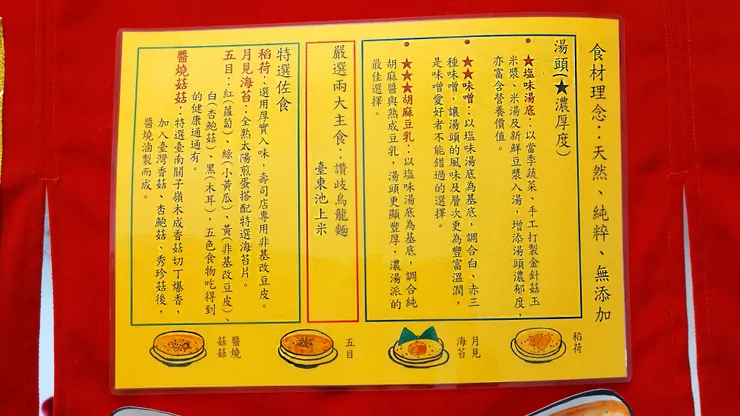 食材理念：天然、純粹、無添加
湯頭(★濃厚度)
★塩味湯底：以當季蔬菜、手工打製金針菇玉
米漿、米湯及新鮮豆漿入湯，增添湯頭濃郁度，
亦富含營養價值。
★★味噌：以塩味湯底為基底，調合白、赤三
種味噌，讓湯頭的風味及層次更為豐富溫潤，
是味噌愛好者不能錯過的選擇。
★★★胡麻豆乳：以塩味湯底為基底，調合純
胡麻醬與熟成豆乳，湯頭更顯豐厚，濃湯派的
最佳選擇。
嚴選兩大主食：讚歧烏龍麵
臺東池上米
特選佐食
稻荷：選用厚實入味，壽司店專用非基改豆皮。
月見海苔：全熟太陽煎蛋搭配特選海苔片。
五目：紅(蘿蔔)、綠(小黃瓜)、黃(非基改豆皮)、
白(杏鮑菇)、黑(木耳)，五色食物吃得到
的健康通通有。
醬燒菇菇：特選臺南關子嶺木成香菇切丁爆香，
加入臺灣香菇、杏鮑菇、秀珍菇後，
醬燒滷製而成。
稻荷
月見
海苔
五目
醬燒
菇菇